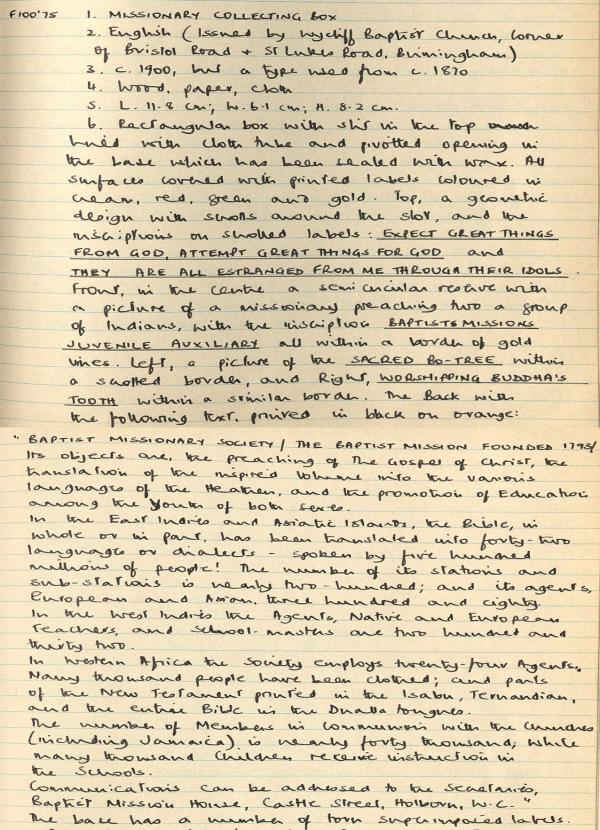 F100'75 1. MISSIONARY COLLECTING BOX
2. English (Issued by Wycliff Baptist Church, Corner
of Bristol Road + St Lukes Road, Birmingham)
3. c. 1900, but a type used from c. 1870
4. Wood, paper, cloth
5. L. 11.8 cm; W. 6.1 cm; H. 8.2 cm.
6. Rectangular box with slit in the top
lined with cloth tube and pivotted opening in
the base which has been sealed with wax. All
surfaces covered with printed labels coloured in
cream, red, green and gold. Top, a geometric
design with scrolls around the slot, and the
inscriptions on scrolled labels: EXPECT GREAT THINGS
FROM GOD, ATTEMPT GREAT THINGS FOR GOD and
THEY ARE ALL ESTRANGED FROM ME THROUGH THEIR IDOLS.
Front, in the centre a semi circular reserve with
a picture of a missionary preaching two a group
of Indians, with the inscription BAPTISTS MISSIONS
JUVENILE AUXILIARY all within a border of gold
vines. Left, a picture of the SACRED BO-TREE within
a scrolled border, and Right, WORSHIPPING BUDDHA'S
TOOTH within a similar border. The Back with
the following text, printed in black on orange:
"BAPTIST MISSIONARY SOCIETY / THE BAPTIST MISSION FOUNDED 1793/
Its objects are, the preaching of The Gospel of Christ, the
translation of the inspired Volume into the various
languages of the Heathen, and the promotion of Education
among the Youth of both sexes.
In the East Indies and Asiatic Islands, the Bible, in
whole or in part, has been translated into forty-two
languages or dialects - spoken by five hundred
millions of people! The number of its stations and
sub-stations is nearly two-hundred; and its agents,
European and Asian, three hundred and eighty.
In the West Indies the Agents, Native and European
Teachers, and School-masters are two hundred and
thirty two.
In Western Africa the Society employs twenty-four Agents.
Many thousand people have been clothed; and parts
of the New Testament printed in the Isabu, Fernandian,
and the entire Bible in the Dualla tongues.
The number of Members in Communion with the Churches
(including Jamaica) is nearly forty thousand; while
many thousand Children receive instruction in
the Schools.
Communications can be addressed to the Secretaries,
Baptist Mission House, Castle Street, Holborn, W.C."
The base has a number of torn superimposed labels.